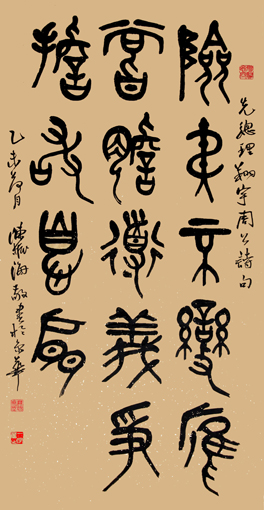 險夷不變應
嘗膽道義爭
擔敢息肩
先總理翔宇周公詩句
乙未荷月 海敬書於京華